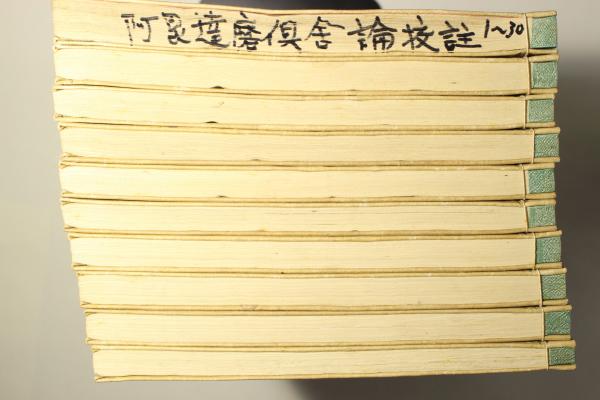 阿毘達磨俱舍論校註 1~30